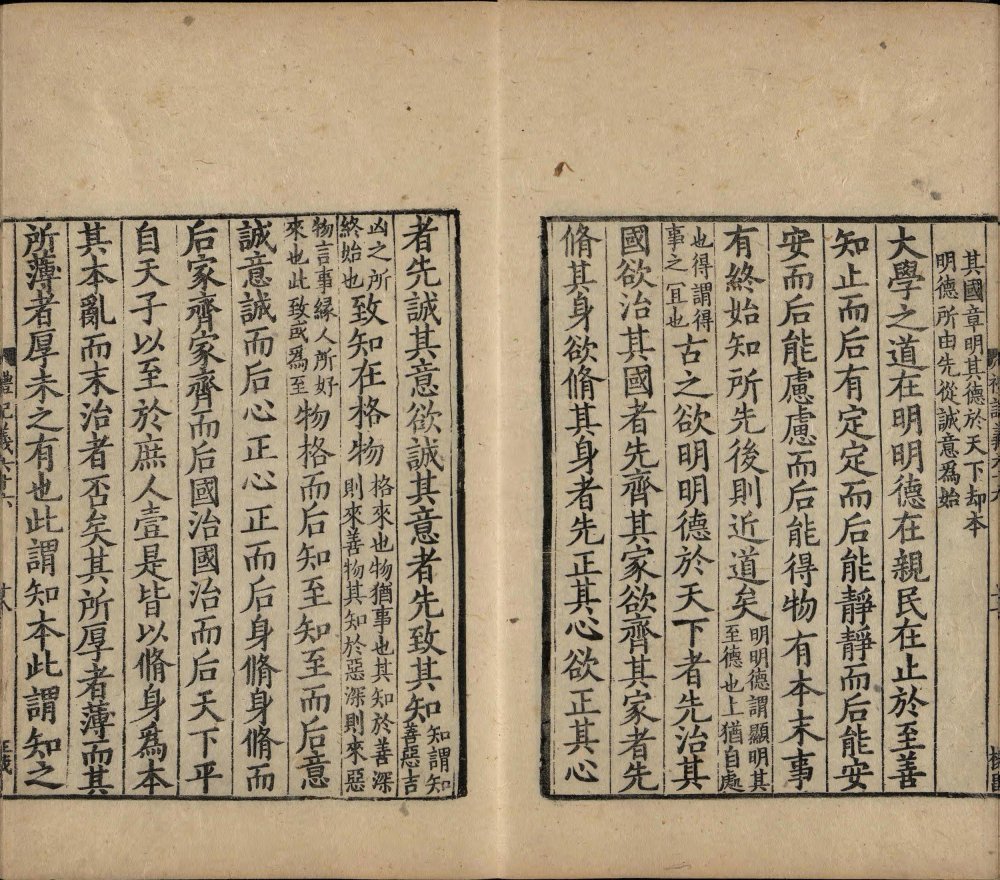 其國章明其德於天下却本
明德所由先從誠意爲始
大學之道在明明德在親民在止於至善
知止而后有定定而后能靜靜而后能安
安而后能慮慮而后能得物有本末事
有終始知所先後則近道矣明明德謂顯明其
至德也止猶自處
也得謂得
事之宜也古之欲明明德於天下者先治其
國欲治其國者先齊其家欲齊其家者先
脩其身欲脩其身者先正其心欲正其心
者先誠其意欲誠其意者先致其知知謂知
善惡吉
凶之所
終始也致知在格物格來也物猶事也其知於善深
則來善物其知於惡深則來惡
物言事緣人所好
來也此致或爲至物格而后知至知至而后意
誠意誠而后心正心正而后身脩身脩而
后家齊家齊而后國治國治而后天下平
自天子以至於庶人壹是皆以脩身爲本
其本亂而末治者否矣其所厚者薄而其
所薄者厚未之有也此謂知本此謂知之